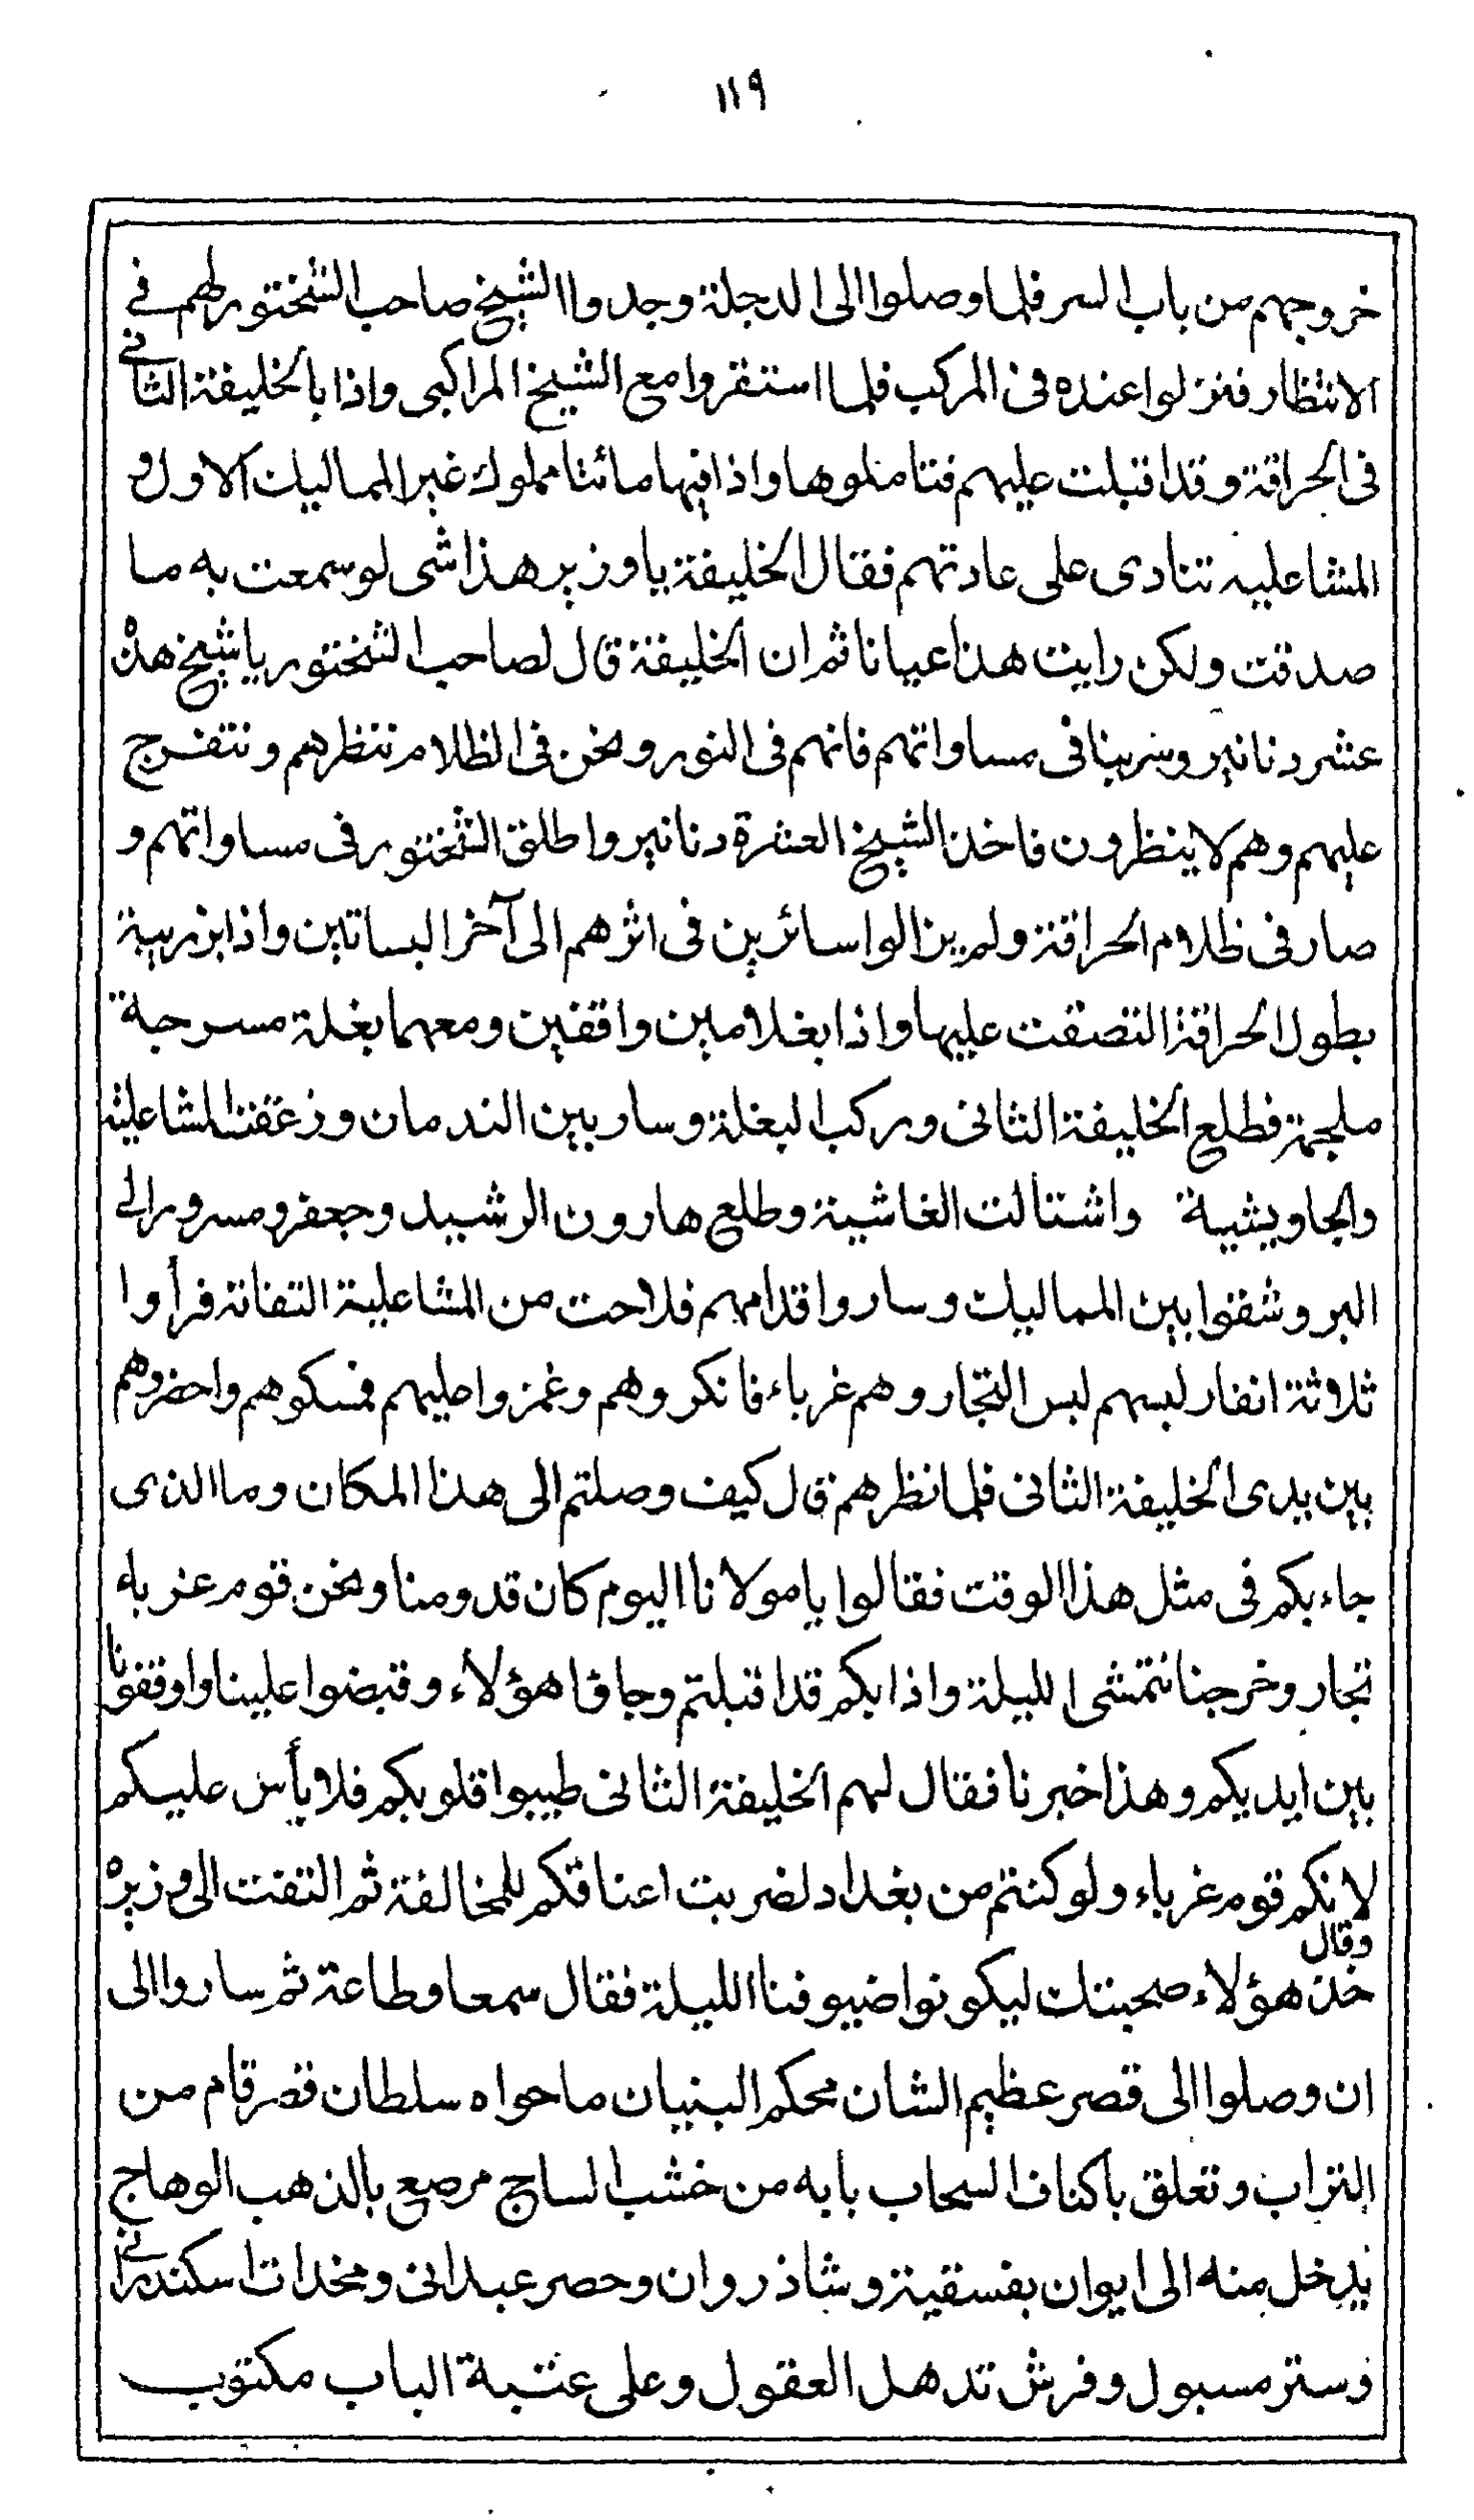 ١١٩
خروجهم من باب السر فلما وصلوا الى الدجلة وجدوا الشيخ صاحب الشختور لهم في
الانتظار فنزلوا عنده في المركب فلما استقروا مع الشيخ المراكبى واذا بالخليفة الثاني
فى الحراقة وقد اقبلت عليهم فتاملوها واذا فيها مائتا مملوك غير المماليك الاول و
المشاعليه تنادى على عادتهم فقال الخليفة يا وزير هذا شى لو سمعت به ما
صدقت ولكن رايت هذا عيانا ثم ان الخليفة قال لصاحب الشختور يا شيخ هذه
عشر دنانير وسر بنا فى مساواتهم فانهم فى النور ونحن فى الظلام ننظرهم ونتفرج
عليهم وهم لا ينظرون فاخذ الشيخ العشرة دنانير واطلق الشختور فى مساواتهم و
صار فى ظلام الحراقة ولم يزالوا سائرين فى اثرهم الى آخر البساتين واذا بزريبة
بطول الحراقة التصقت عليها واذا بغلامين واقفين ومعهما بغلة مسرجة
ملجمة فطلع الخليفة الثانى وركب البغلة وسار بين الندمان وزعقت المشاعلية
والجاويشية واشتالت الغاشية وطلع هارون الرشيد وجعفر ومسرور الى
البر وشقوا بين المماليك وساروا قدامهم فلاحت من المشاعلية التفاتة فرأوا
ثلاثة انفار لبسهم لبس التجار وهم غرباء فانكروهم وغمزوا عليهم فمسكوهم واحضروهم
بين يدى الخليفة الثانى فلما نظرهم قال كيف وصلتم الى هذا المكان وما الذى
جاء بكم فى مثل هذا الوقت فقالوا يا مولانا اليوم كان قدومنا ونحن قوم غرباء
تجار وخرجنا نتمشى الليلة واذا بكم قد اقبلتم وجاؤا هؤلاء وقبضوا علينا واوقفونا
بين ايديكم وهذا خبرنا فقال لهم الخليفة الثانى طيبوا قلوبكم فلا بأس عليكم
لانكم قوم غرباء ولو كنتم من بغداد لضربت اعناقكم للمخالفة ثم التفت الى وزيره
وقال
خذ هؤلاء صحبتك ليكونوا ضيوفنا الليلة فقال سمعا وطاعة ثم ساروا الى
ان وصلوا الى قصر عظيم الشان محكم البنيان ما حواه سلطان قصر قام من
التراب وتعلق باكناف السحاب بابه من خشب الساج مرصع بالذهب الوهاج
يدخل منه الى ايوان بفسقية وشاذروان وحصر عبدانى ومخدات اسكندراني
وستر مسبول وفرش تدهل العقول وعلى عتبة الباب مكتوب